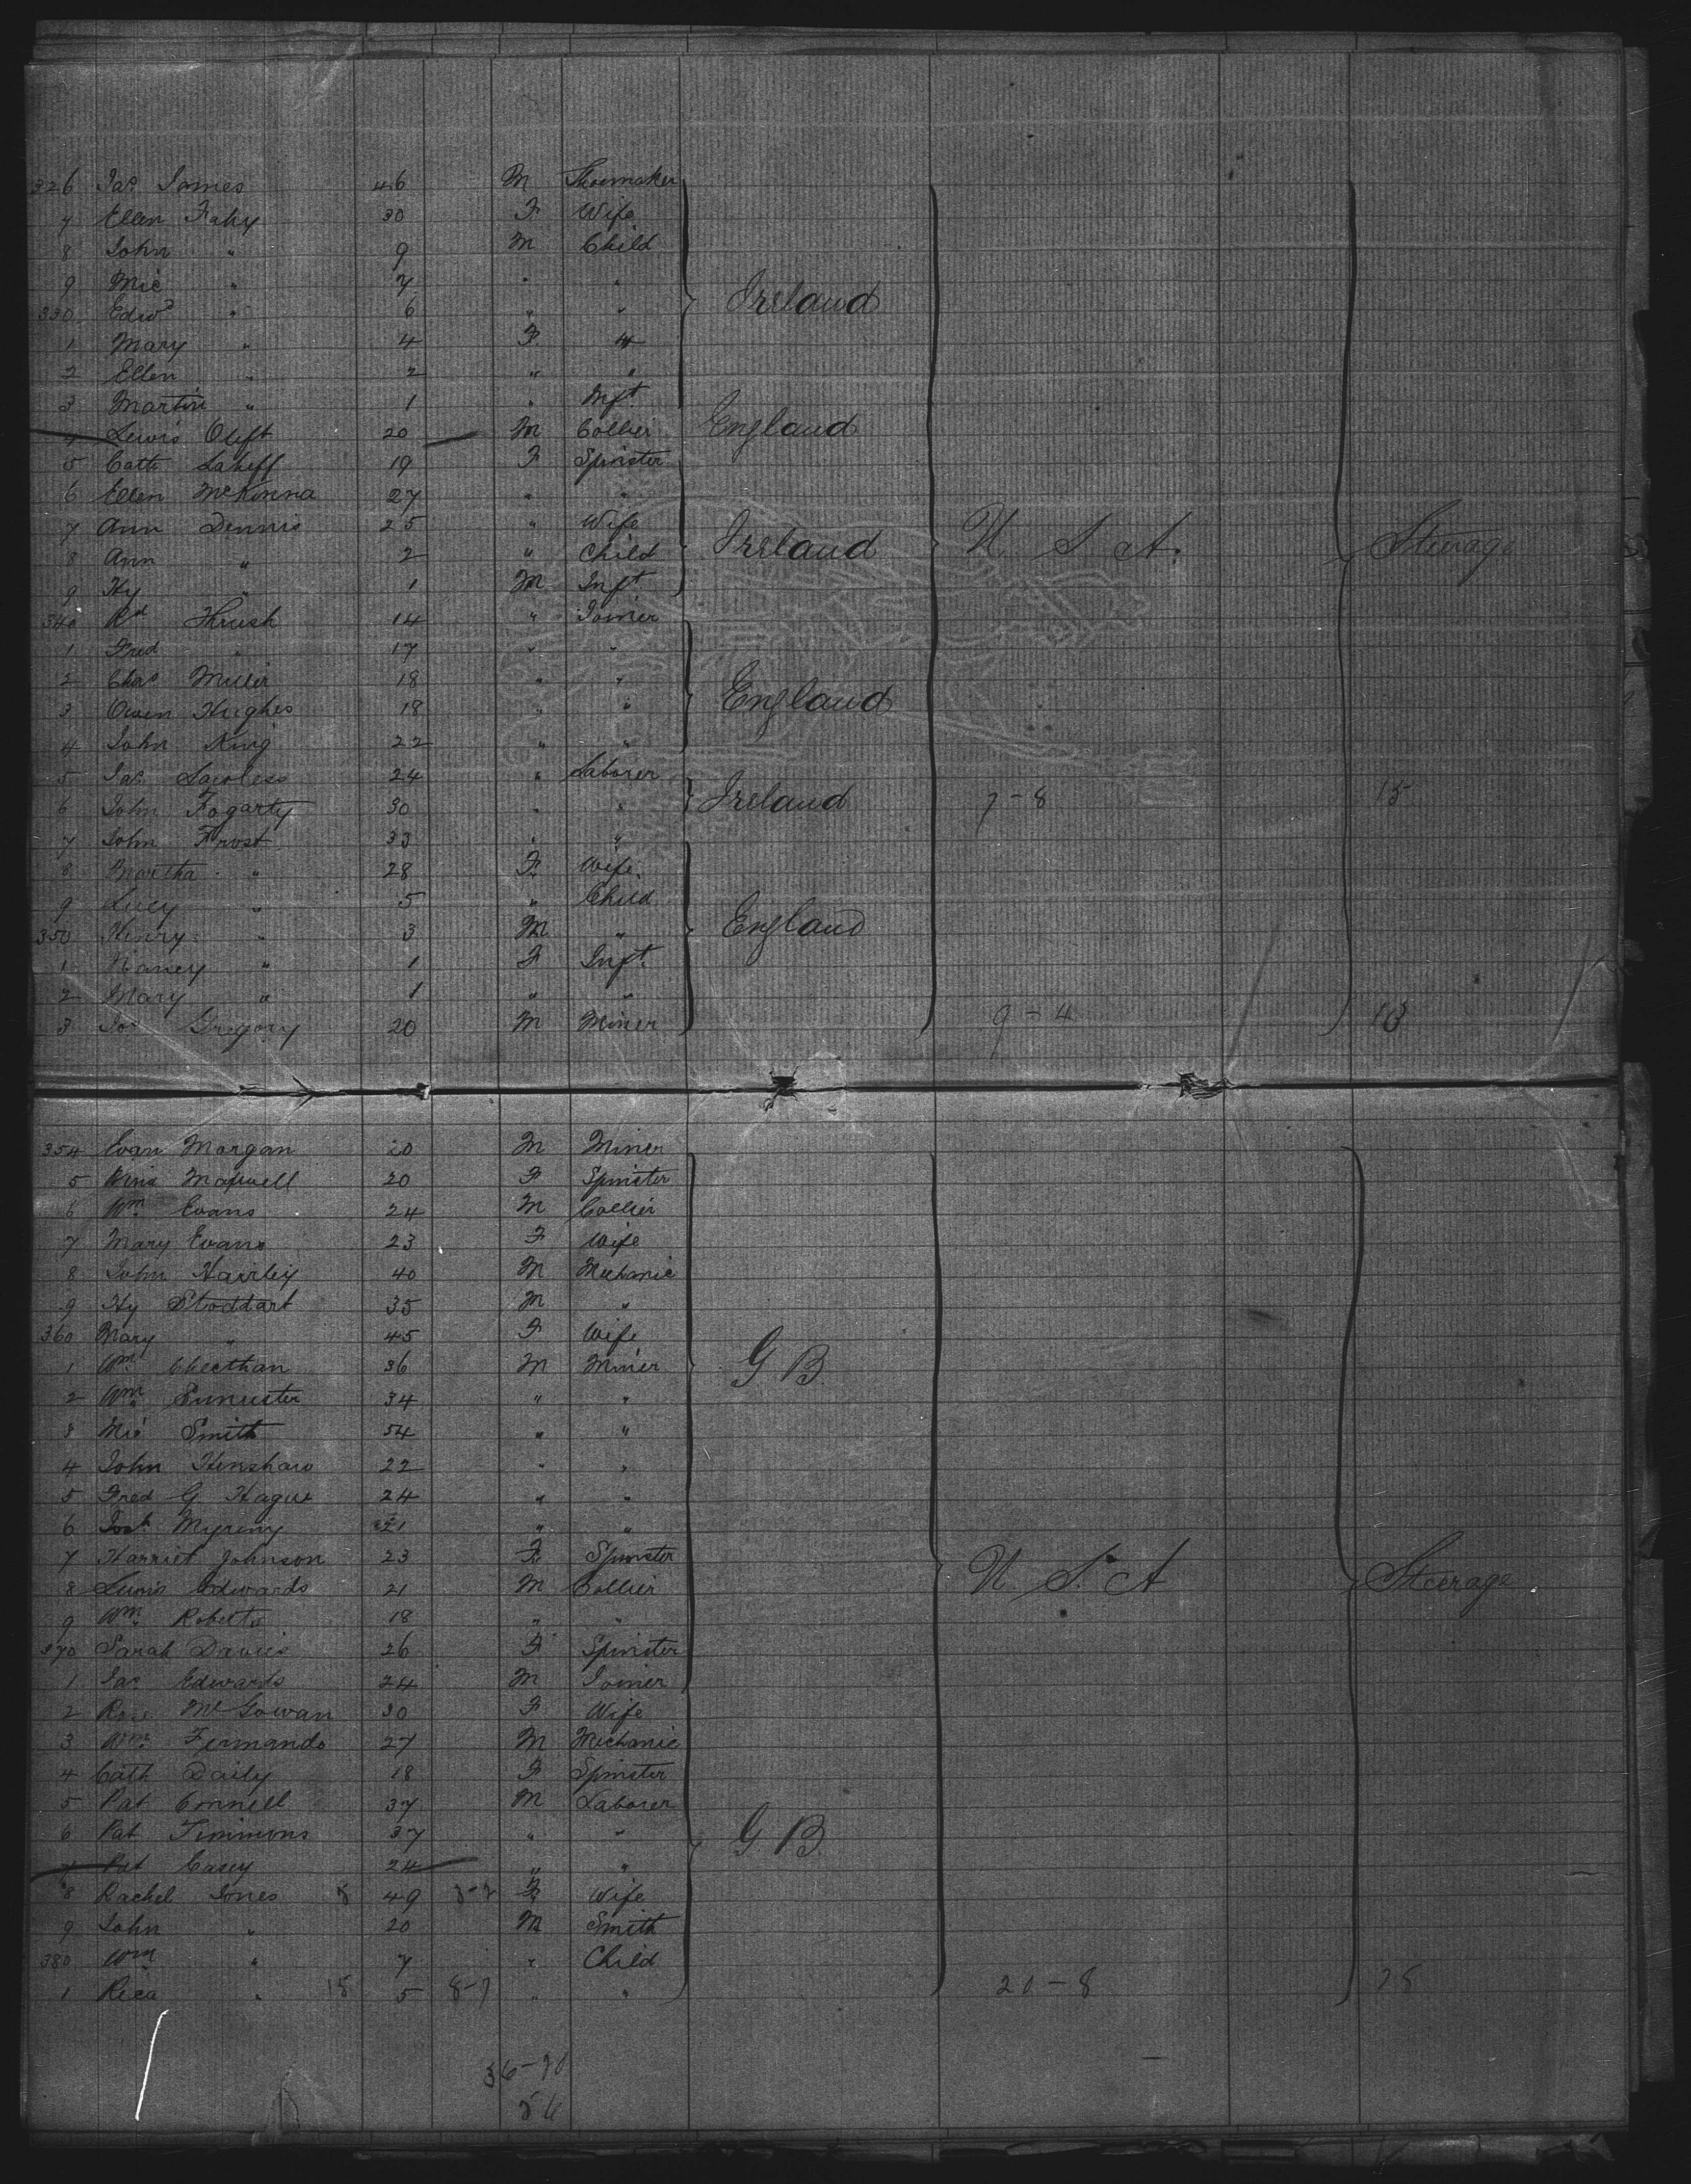 326 Jas James 46 M Shoemaker
7 Ellen Fahy 30 F Wife
8 John " 9 M Child
9 Mic " 7 " "
330 Edwd " 6 " " Ireland
1 Mary " 4 F "
2 Ellen " 2 " "
3 Martin " 1 " Inft
4 Lewis Olift 20 M Collier England
5 Cath Laheff 19 F Spinster
6 Ellen McKinna 27 " "
7 Ann Dennis 25 " Wife
8 Ann " 2 " Child Ireland U. S. A. Steerage
9 Hy " 1 M Inft
340 Rd Thrush 14 " Joiner
1 Fred " 17 " "
2 Chas Miller 18 " "
3 Owen Hughes 18 " " England
4 John King 22 " "
5 Jas Lawless 24 " Laborer
6 John Fogarty 30 " " Ireland 7-8 15
7 John Frost 33 " "
8 Martha " 28 F Wife
9 Lucy " 5 " Child
350 Henry " 3 M " England
1 Nancy " 1 F Inft
2 Mary " 1 " "
3 Jos Gregory 20 M Miner 9-4 13
354 Evan Morgan 20 M Miner
5 Wina Maxwell 20 F Spinster
6 Wm Evans 24 M Collier
7 Mary Evans 23 F Wife
8 John Harrley 40 M Mechanic
9 Hy Stoddart 35 M "
360 Mary " 45 F Wife
1 Wm Cheethan 36 M Miner G B.
2 Wm 34 " "
3 Mic Smith 54 " "
4 John Henshaw 22 " "
5 Fred G Hague 24 " "
6 21 " "
7 Harriet Johnson 23 F Spinster
8 Lewis Edwards 21 M Collier U. S. A Steerage
9 Wm Roberts 18 " "
370 Sarah Davies 26 F Spinster
1 Jas Edwards 24 M Joiner
2 Rose McGowan 30 F Wife
3 Wm Fernando 27 M Mechanic
4 Cath Daily 18 F Spinster
5 Pat Connell 37 M Laborer
6 Pat Timmons 37 " " G B.
7 Pat Casey 24 " "
8 Rachel Jones 49 F Wife
9 John " 20 M Smith
380 Wm " 7 " Child
1 Rica " 18 5 8-7 " " 20-8 28
36-20
56